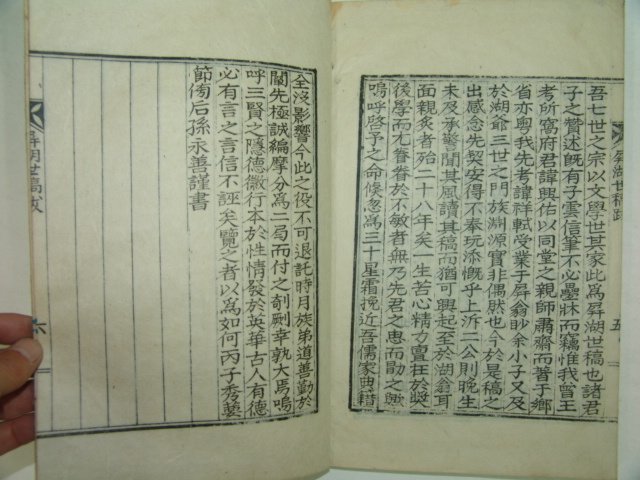 吾七世之宗以文學世其家此爲屛湖世稿也諸君
子之贊述旣有子雲信筆不必疊牀而竊惟我曾王
考所窩府君諱興佑以同堂之親師肅齋而著于鄕
省亦粤我先考諱祥軾受業于屛翁眇余小子又及
於湖翁三世之門族淵源實非偶然也今於是稿之
出感念先契安得不奉玩添慨乎上泝二公則晚生
未及承警聞其風讀其稿而猶可興起至於湖翁耳
面親炙者殆二十八年矣一生苦心精力亶在於奬
後學而尤眷眷於不敏者無乃先君之惠而勖之歟
嗚呼啓予之命倏忽爲三十星霜挽近吾儒家典籍
屛湖世稿跋
五
全沒影響今此之役不可退託時月族弟道善勤於
闡先極誠編摩分爲二局而付之剞劂幸孰大焉嗚
呼三賢之隱德徽行本於性情發於英華古人有德
必有言之言信不誣矣覽之者以爲如何丙子秀葽
節傍后孫永善謹書
屛湖世稿跋
六